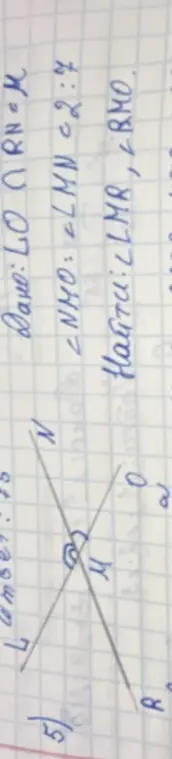 5)
Дано: LO ∩ RN = M
∠NMO : ∠LMN = 2 : 7
Найти: ∠LMR, ∠RMO.
L
N
M
R
O